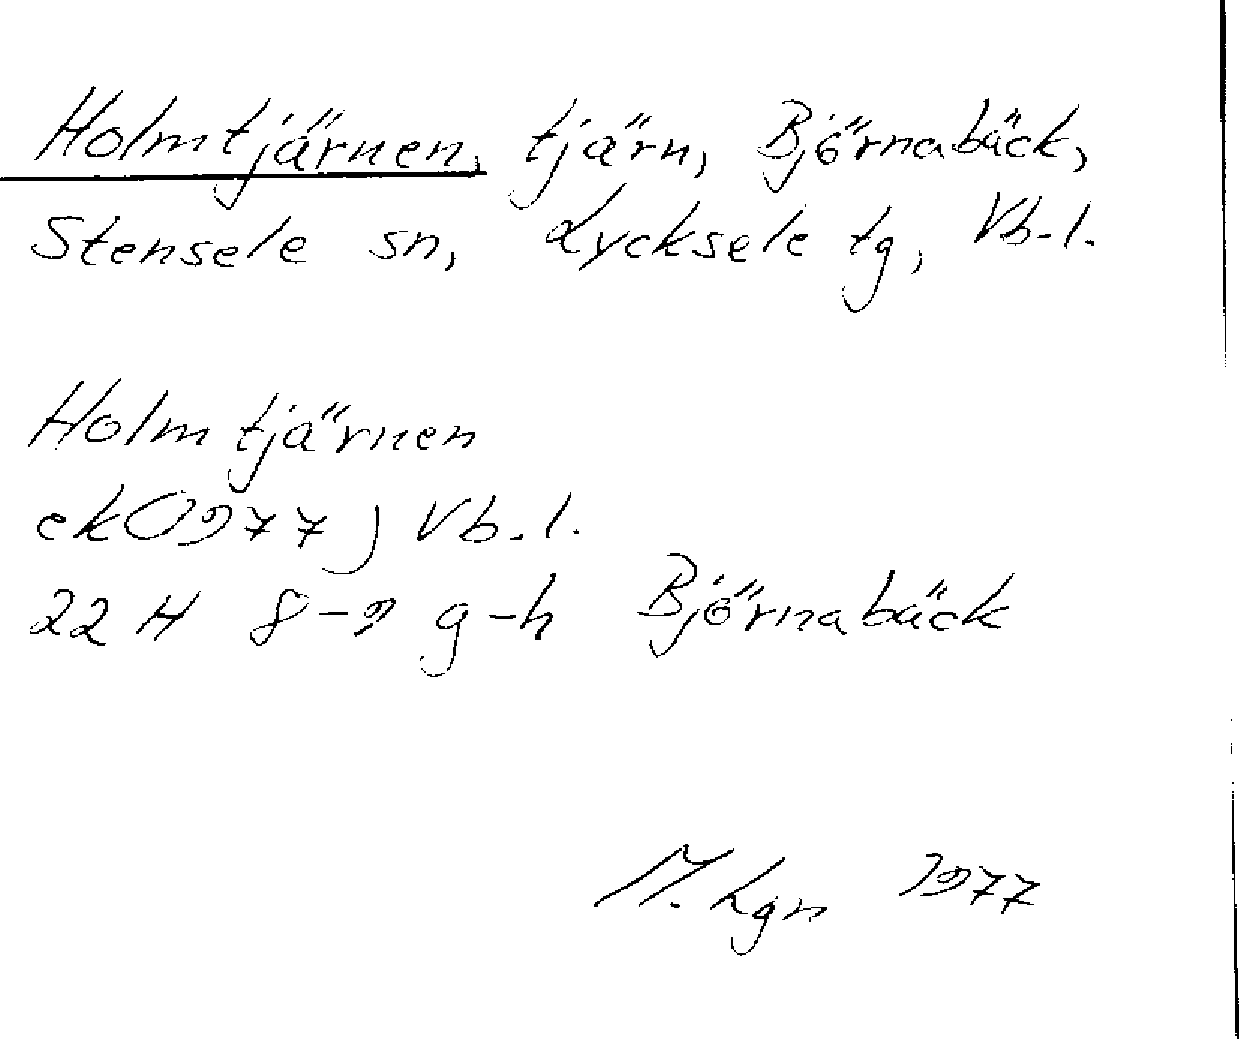 Holmtjärnen, tjärn, Björnabäck,
Stensele sn, Lycksele tg, Vb.l.
Holmtjärnen
ek(1977) Vb.l.
22 H 8-9 g-h Björnabäck
M. Lgn 1977